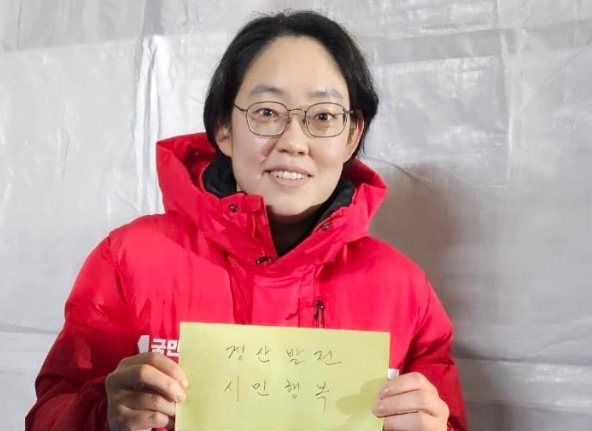 국민
경산발전
시민행복